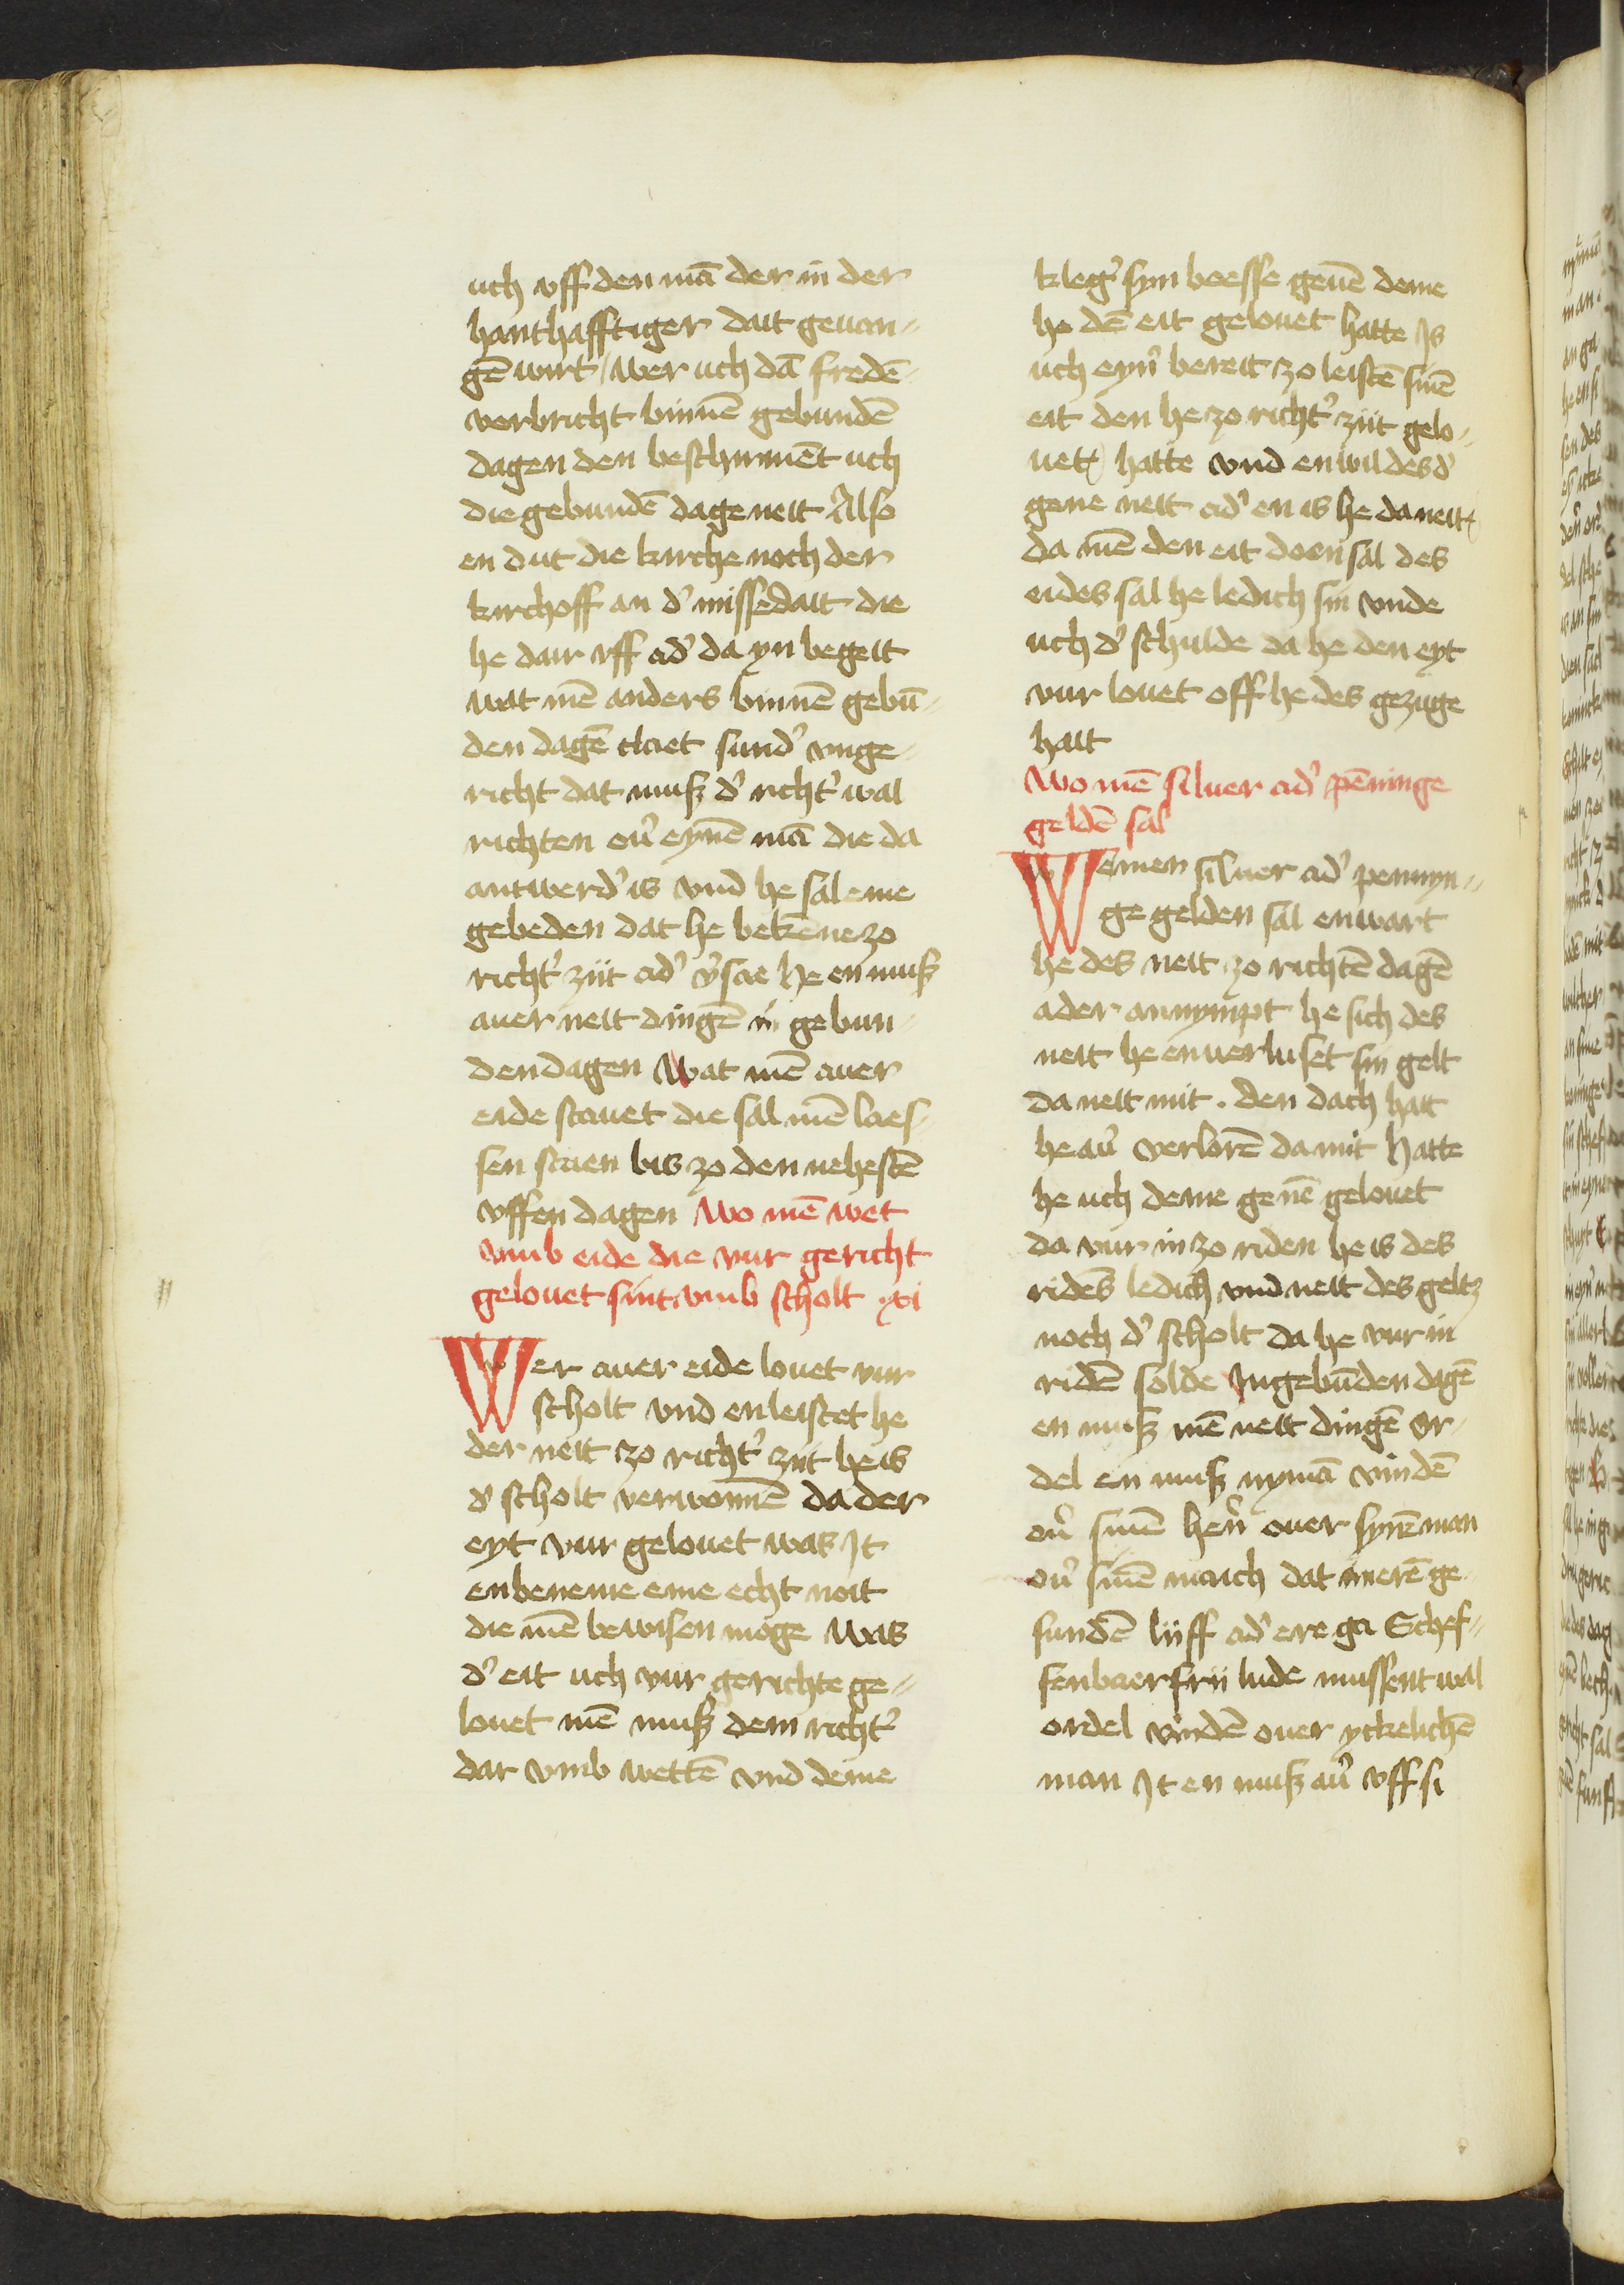 uch vff den mā der in der
hanthafftiger dait geuan-
gē wirt / wer uch dā fredē
verbricht binnē gebundē
dagen den beschirmēt uch
die gebundē dage neit Also
en dut die kirche noch der
kirchoff an d' missedait die
he dair vff ad' da yn begeit
wat mē anders binnē gebū-
den dagē claet sund' vnge-
richt dat muß d' richt' wal
richten ou' eynē mā die da
antwerd' is vnd he sal eme
gebeden dat he bekēne zo
richt' ziit ad' v'sae he en muß
auer neit dingē in gebun-
den dagen Wat mē auer
eide stauet die sal mē laes-
sen staen bis zo den nehestē
vffen dagen Wo mē wet
vmb eide die vur gericht
gelouet sint vmb scholt xi
Wer auer eide louet vur
scholt vnd enleistet he
der neit zo richt' ziit he is
d' scholt verwonnē da der
eyt vur gelouet was It
enbeneme eme echt noit
die mē bewisen moge Was
d' eit uch vur gerichte ge-
louet mē muß dem richt'
dar vmb wettē vnd deme
kleg' syn boesse geuē deme
he dē eit gelouet hatte Is
uch eyn' bereit zo leistē sinē
eit den he zo richt' ziit gelo-
uet hatte vnd enwil des d'
gene neit ad' en is he da neit
da mē den eit doen sal des
eides sal he ledich sin vnde
uch d' schulde da he den eyt
vur louet off he des gezuge
hait
Wo mē siluer ad' pēninge
geldē sal
Wemen siluer ad' pennyn-
ge gelden sal enwart
he des neit zo richtē dagē
ader annympt he sich des
neit he enuerluset sin gelt
da neit mit . den dach hait
he au' verlorē da mit hatte
he uch deme genē gelouet
da vur in zo riden he is des
ridēs ledich vnd neit des geltz
noch d' scholt da he vur in
ridē solde In gebūden dagē
en muß mē neit dingē Or-
del en muß nymā vindē
ou' sinē hen' ouer synē man
ou' sinē maich dat in erē ge-
sundē liiff ad' ere ga Schef-
fenbaer frii lude mussent wal
ordel vindē ouer yckelichē
man It en muß au' vff si